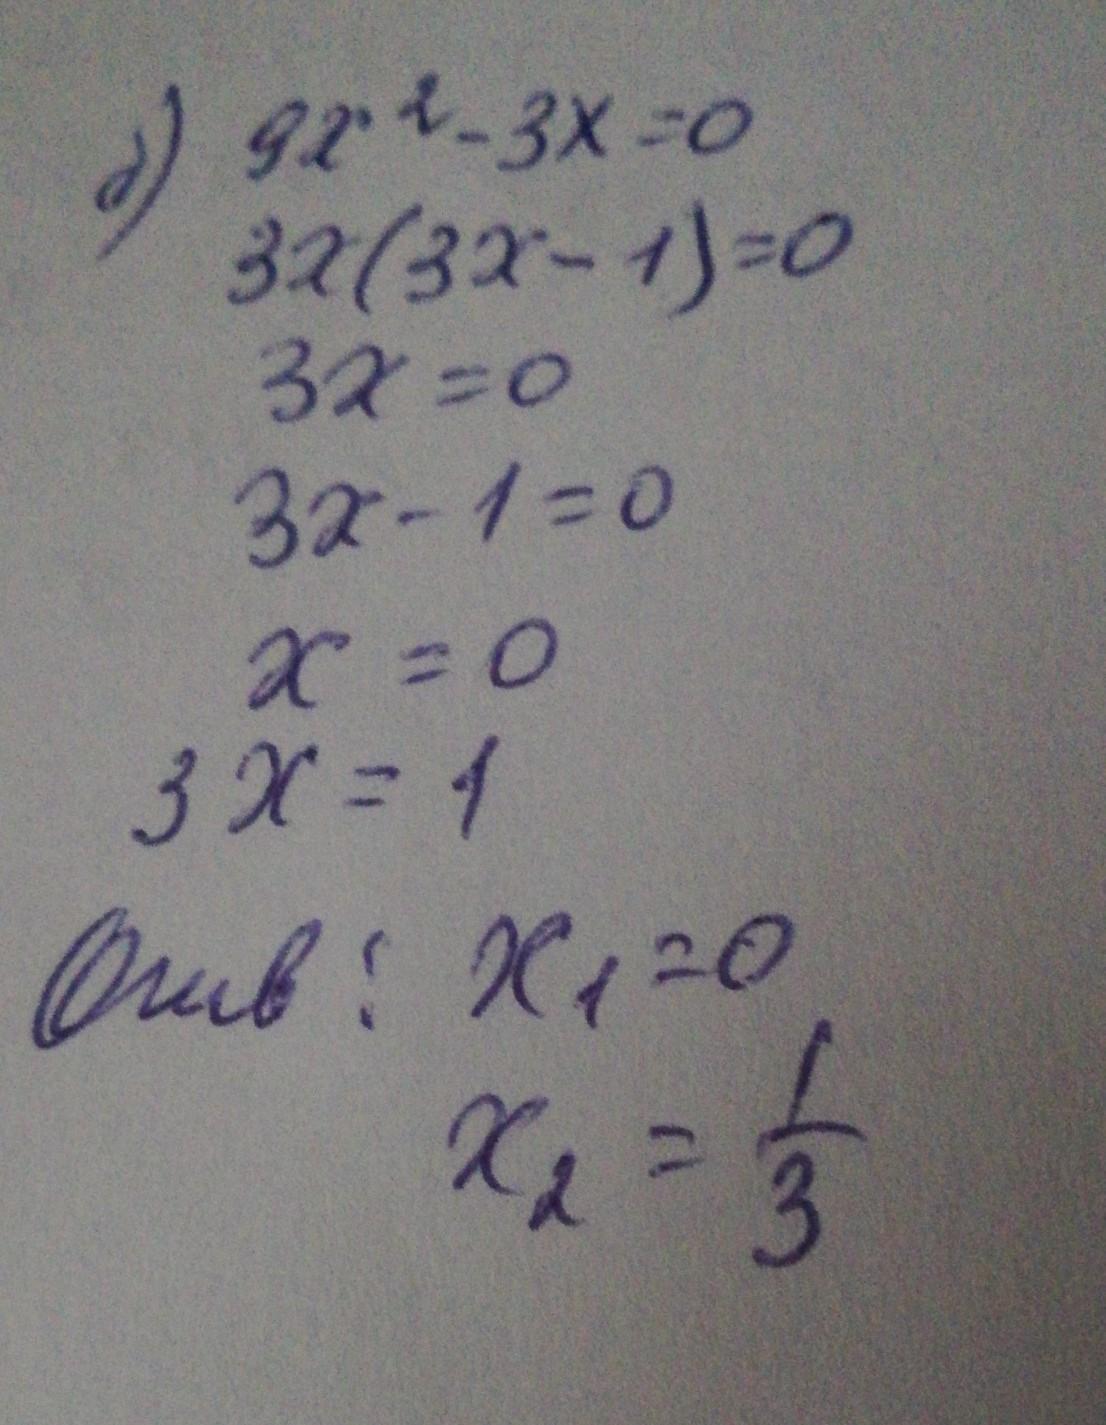 б) 9x² - 3x = 0
3x(3x - 1) = 0
3x = 0
3x - 1 = 0
x = 0
3x = 1
Отв: x₁ = 0
x₂ = 1/3